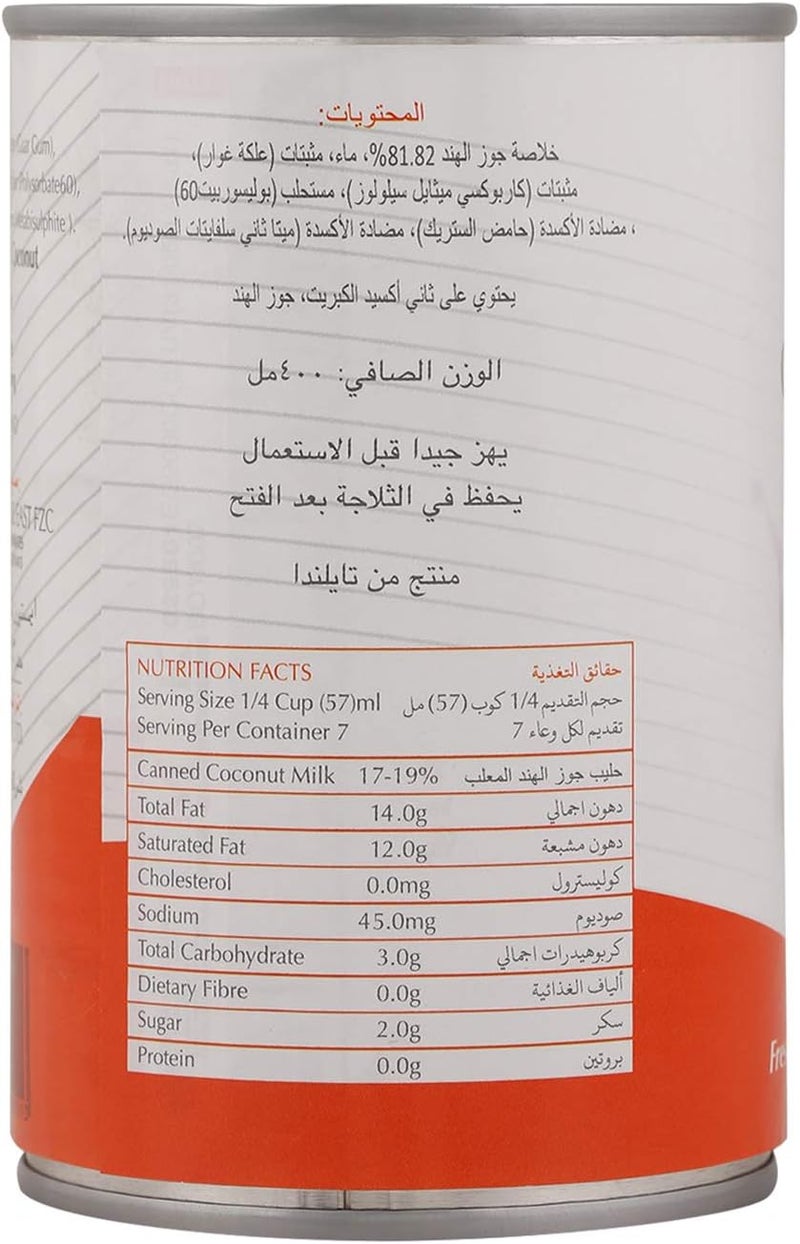 المحتويات:
خلاصة جوز الهند 81.82%، ماء، مثبتات (علكة غوار)،
مثبتات (كاربوكسي ميثايل سيلولوز)، مستحلب (بوليسوربيت60)
، مضادة الأكسدة (حامض الستريك)، مضادة الأكسدة (ميتا ثاني سلفايتات الصوديوم).
يحتوي على ثاني أكسيد الكبريت، جوز الهند
الوزن الصافي: ٤٠٠مل
يهز جيدا قبل الاستعمال
يحفظ في الثلاجة بعد الفتح
منتج من تايلندا
NUTRITION FACTS حقائق التغذية
Serving Size 1/4 Cup (57)ml حجم التقديم 1/4 كوب (57) مل
Serving Per Container 7 تقديم لكل وعاء 7
Canned Coconut Milk 17-19% حليب جوز الهند المعلب
Total Fat 14.0g دهون اجمالي
Saturated Fat 12.0g دهون مشبعة
Cholesterol 0.0mg كوليسترول
Sodium 45.0mg صوديوم
Total Carbohydrate 3.0g كربوهيدرات اجمالي
Dietary Fibre 0.0g ألياف الغذائية
Sugar 2.0g سكر
Protein 0.0g بروتين
Gum),
Polysorbate60),
FZC